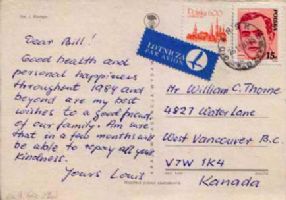 Dear Bill!
Good health and
personal happiness
throughout 1984 and
beyond are my best
wishes to a good friend
of our family. Am sure
that in a few months will
be able to repay all your
kindness.
Yours Louis
LOTNICZA
PAR AVION
Polska 600
POLSKA
15
Mr William C. Thorne
4827 Water Lane
West Vancouver B.C
V7W 1K4
Kanada